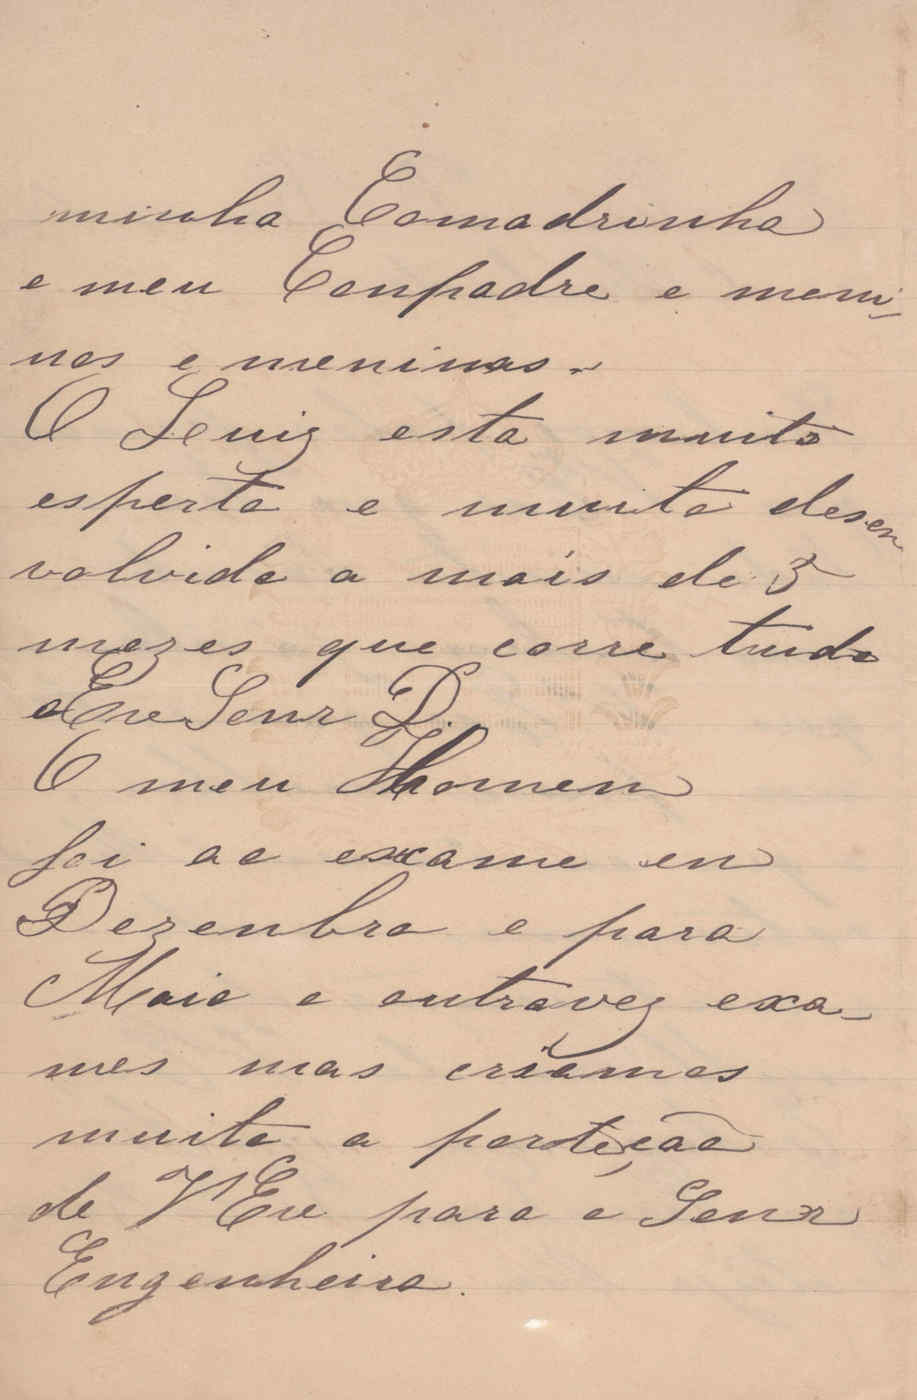 minha Comadrinha
e meu Conpadre e meni-
nos e meninas.
O Leuiz esta muito
esperto e muito desen
volvido a mais de 3
mezes que corre tudo
o Exe Senr D.
O meu Homen
foi ao exame en
Dezenbro e para
Maio e outravez exa-
mes mas criamos
muito a porteção
de V Exe para o Senr
Engenheiro.